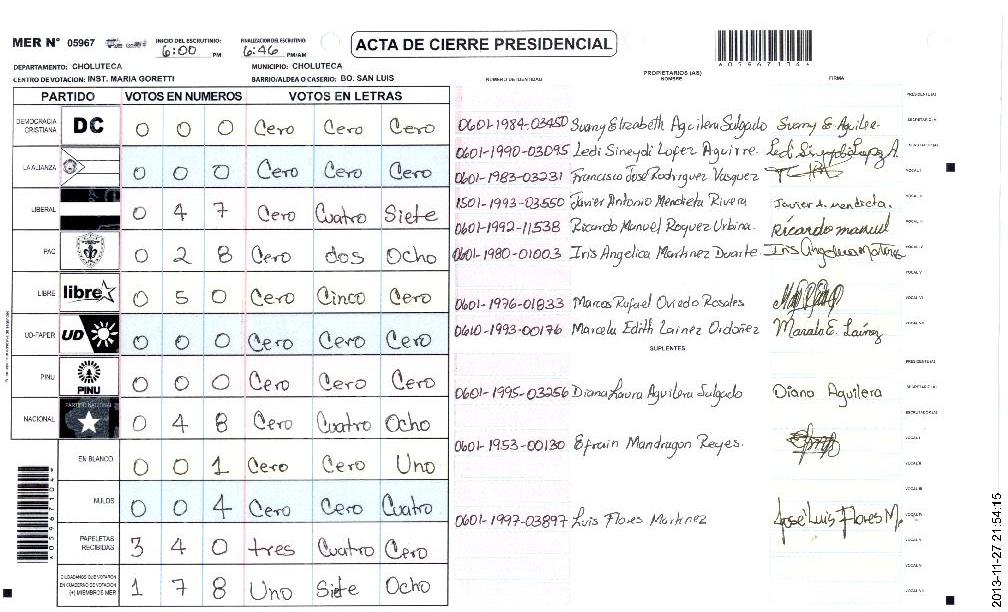 MER N° 05967 INICIO DEL ESCRUTINIO: 6:00 PM FINALIZACION DEL ESCRUTINIO: 6:46 PM/AM ACTA DE CIERRE PRESIDENCIAL
DEPARTAMENTO: CHOLUTECA MUNICIPIO: CHOLUTECA
CENTRO DE VOTACION: INST. MARIA GORETTI BARRIO/ALDEA O CASERIO: BO. SAN LUIS
PARTIDO VOTOS EN NUMEROS VOTOS EN LETRAS
DEMOCRACIA CRISTIANA DC 0 0 0 Cero Cero Cero
LA ALIANZA 0 0 0 Cero Cero Cero
LIBERAL 0 4 7 Cero Cuatro Siete
PAC 0 2 8 Cero dos Ocho
LIBRE libre 0 5 0 Cero Cinco Cero
UD-FAPER UD 0 0 0 Cero Cero Cero
PINU PINU 0 0 0 Cero Cero Cero
NACIONAL PARTIDO NACIONAL 0 4 8 Cero Cuatro Ocho
EN BLANCO 0 0 1 Cero Cero Uno
NULOS 0 0 4 Cero Cero Cuatro
PAPELETAS RECIBIDAS 3 4 0 tres Cuatro Cero
CIUDADANOS QUE VOTARON EN CUADERNO DE VOTACION (+) MIEMBROS MER 1 7 8 Uno Siete Ocho
NUMERO DE IDENTIDAD PROPIETARIOS (AS) NOMBRE FIRMA
PRESIDENTE(A)
0601-1984-03450 Suany Elizabeth Aguilera Salgado Suany E Aguilera SECRETARIO(A)
0601-1990-03095 Ledi Sineydi Lopez Aguirre. Ledi Sineydi Lopez A. ESCRUTADOR(A)
0601-1983-03231 Francisco José Rodriguez Vasquez VOCAL I
1501-1993-03550 Javier Antonio Mendieta Rivera Javier A. mendieta.
0601-1992-11538 Ricardo Manuel Roquez Urbina. Ricardo manuel
0601-1980-01003 Iris Angelica Martinez Duarte Iris Angelica Martinez
0601-1976-01833 Marcos Rafael Oviedo Rosales
0610-1993-00176 Marcela Edith Lainez Ordoñez Marcela E. Lainez
SUPLENTES
PRESIDENTE(A)
0601-1995-03256 Diana Laura Aguilera Salgado Diana Aguilera SECRETARIO(A)
ESCRUTADOR(A)
0601-1953-00130 Efrain Mandragon Reyes. VOCAL I
0601-1997-03897 Luis Flores Martinez José Luis Flores M.
4059671044
2013-11-27 21:54:15